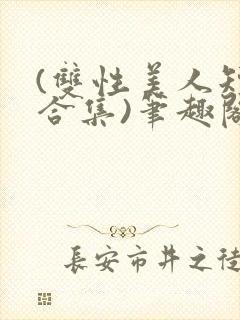 (雙性美人短
合集)筆趣閣
長安市井之徒